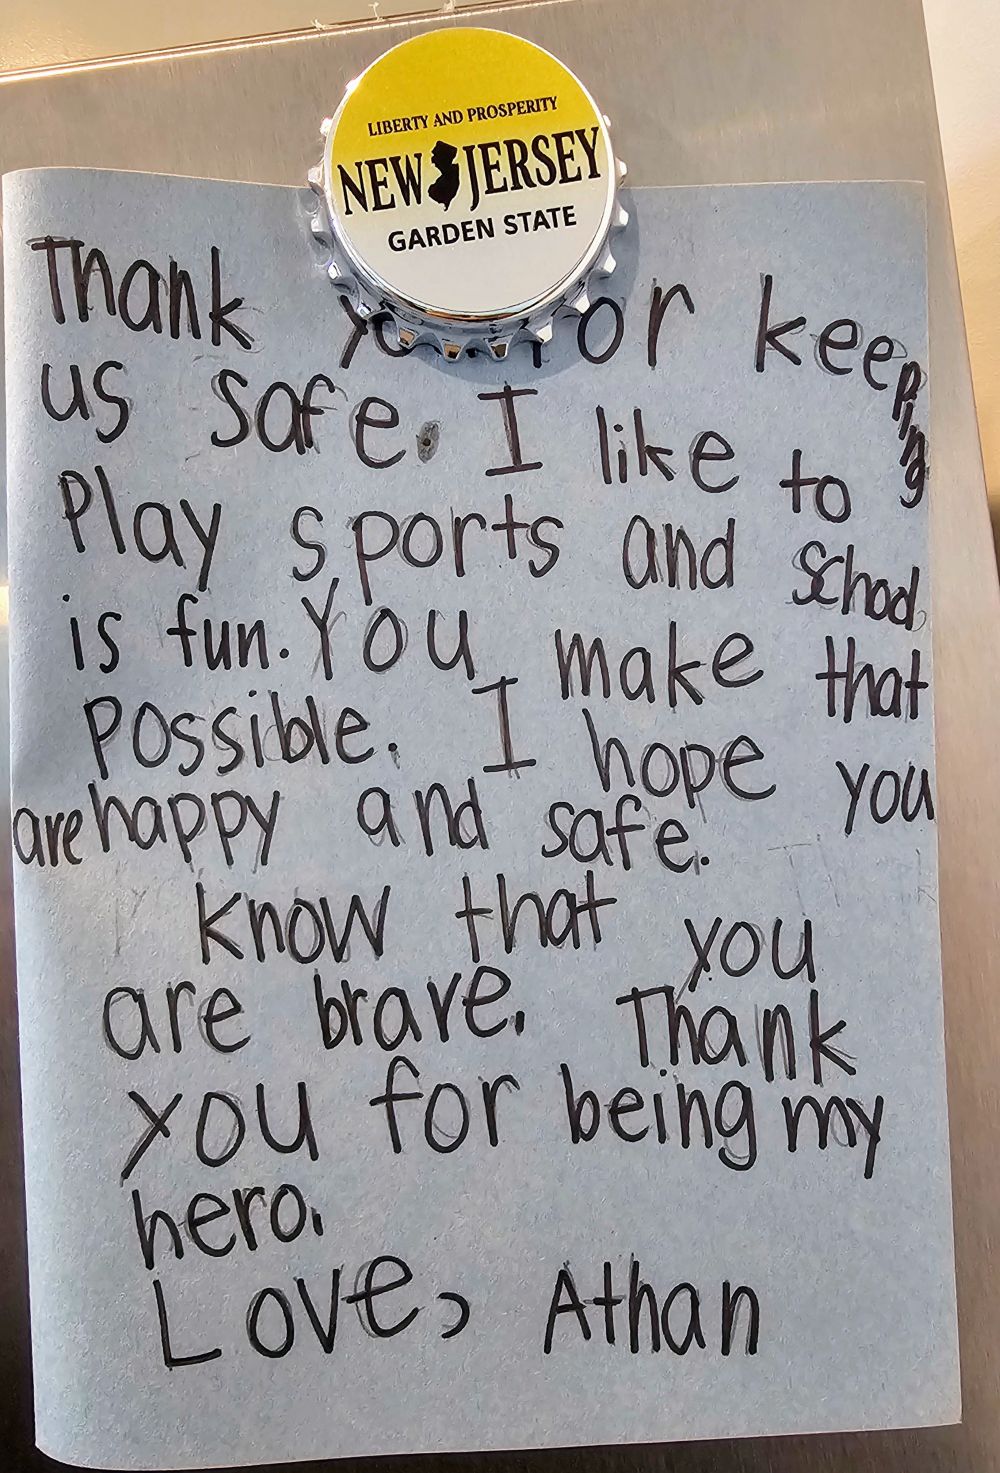 LIBERTY AND PROSPERITY
NEW JERSEY
GARDEN STATE
Thank you for keeping
us safe. I like to
Play sports and school
is fun. You make that
Possible. I hope you
are happy and safe.
know that you
are brave. Thank
you for being my
hero.
Love, Athan